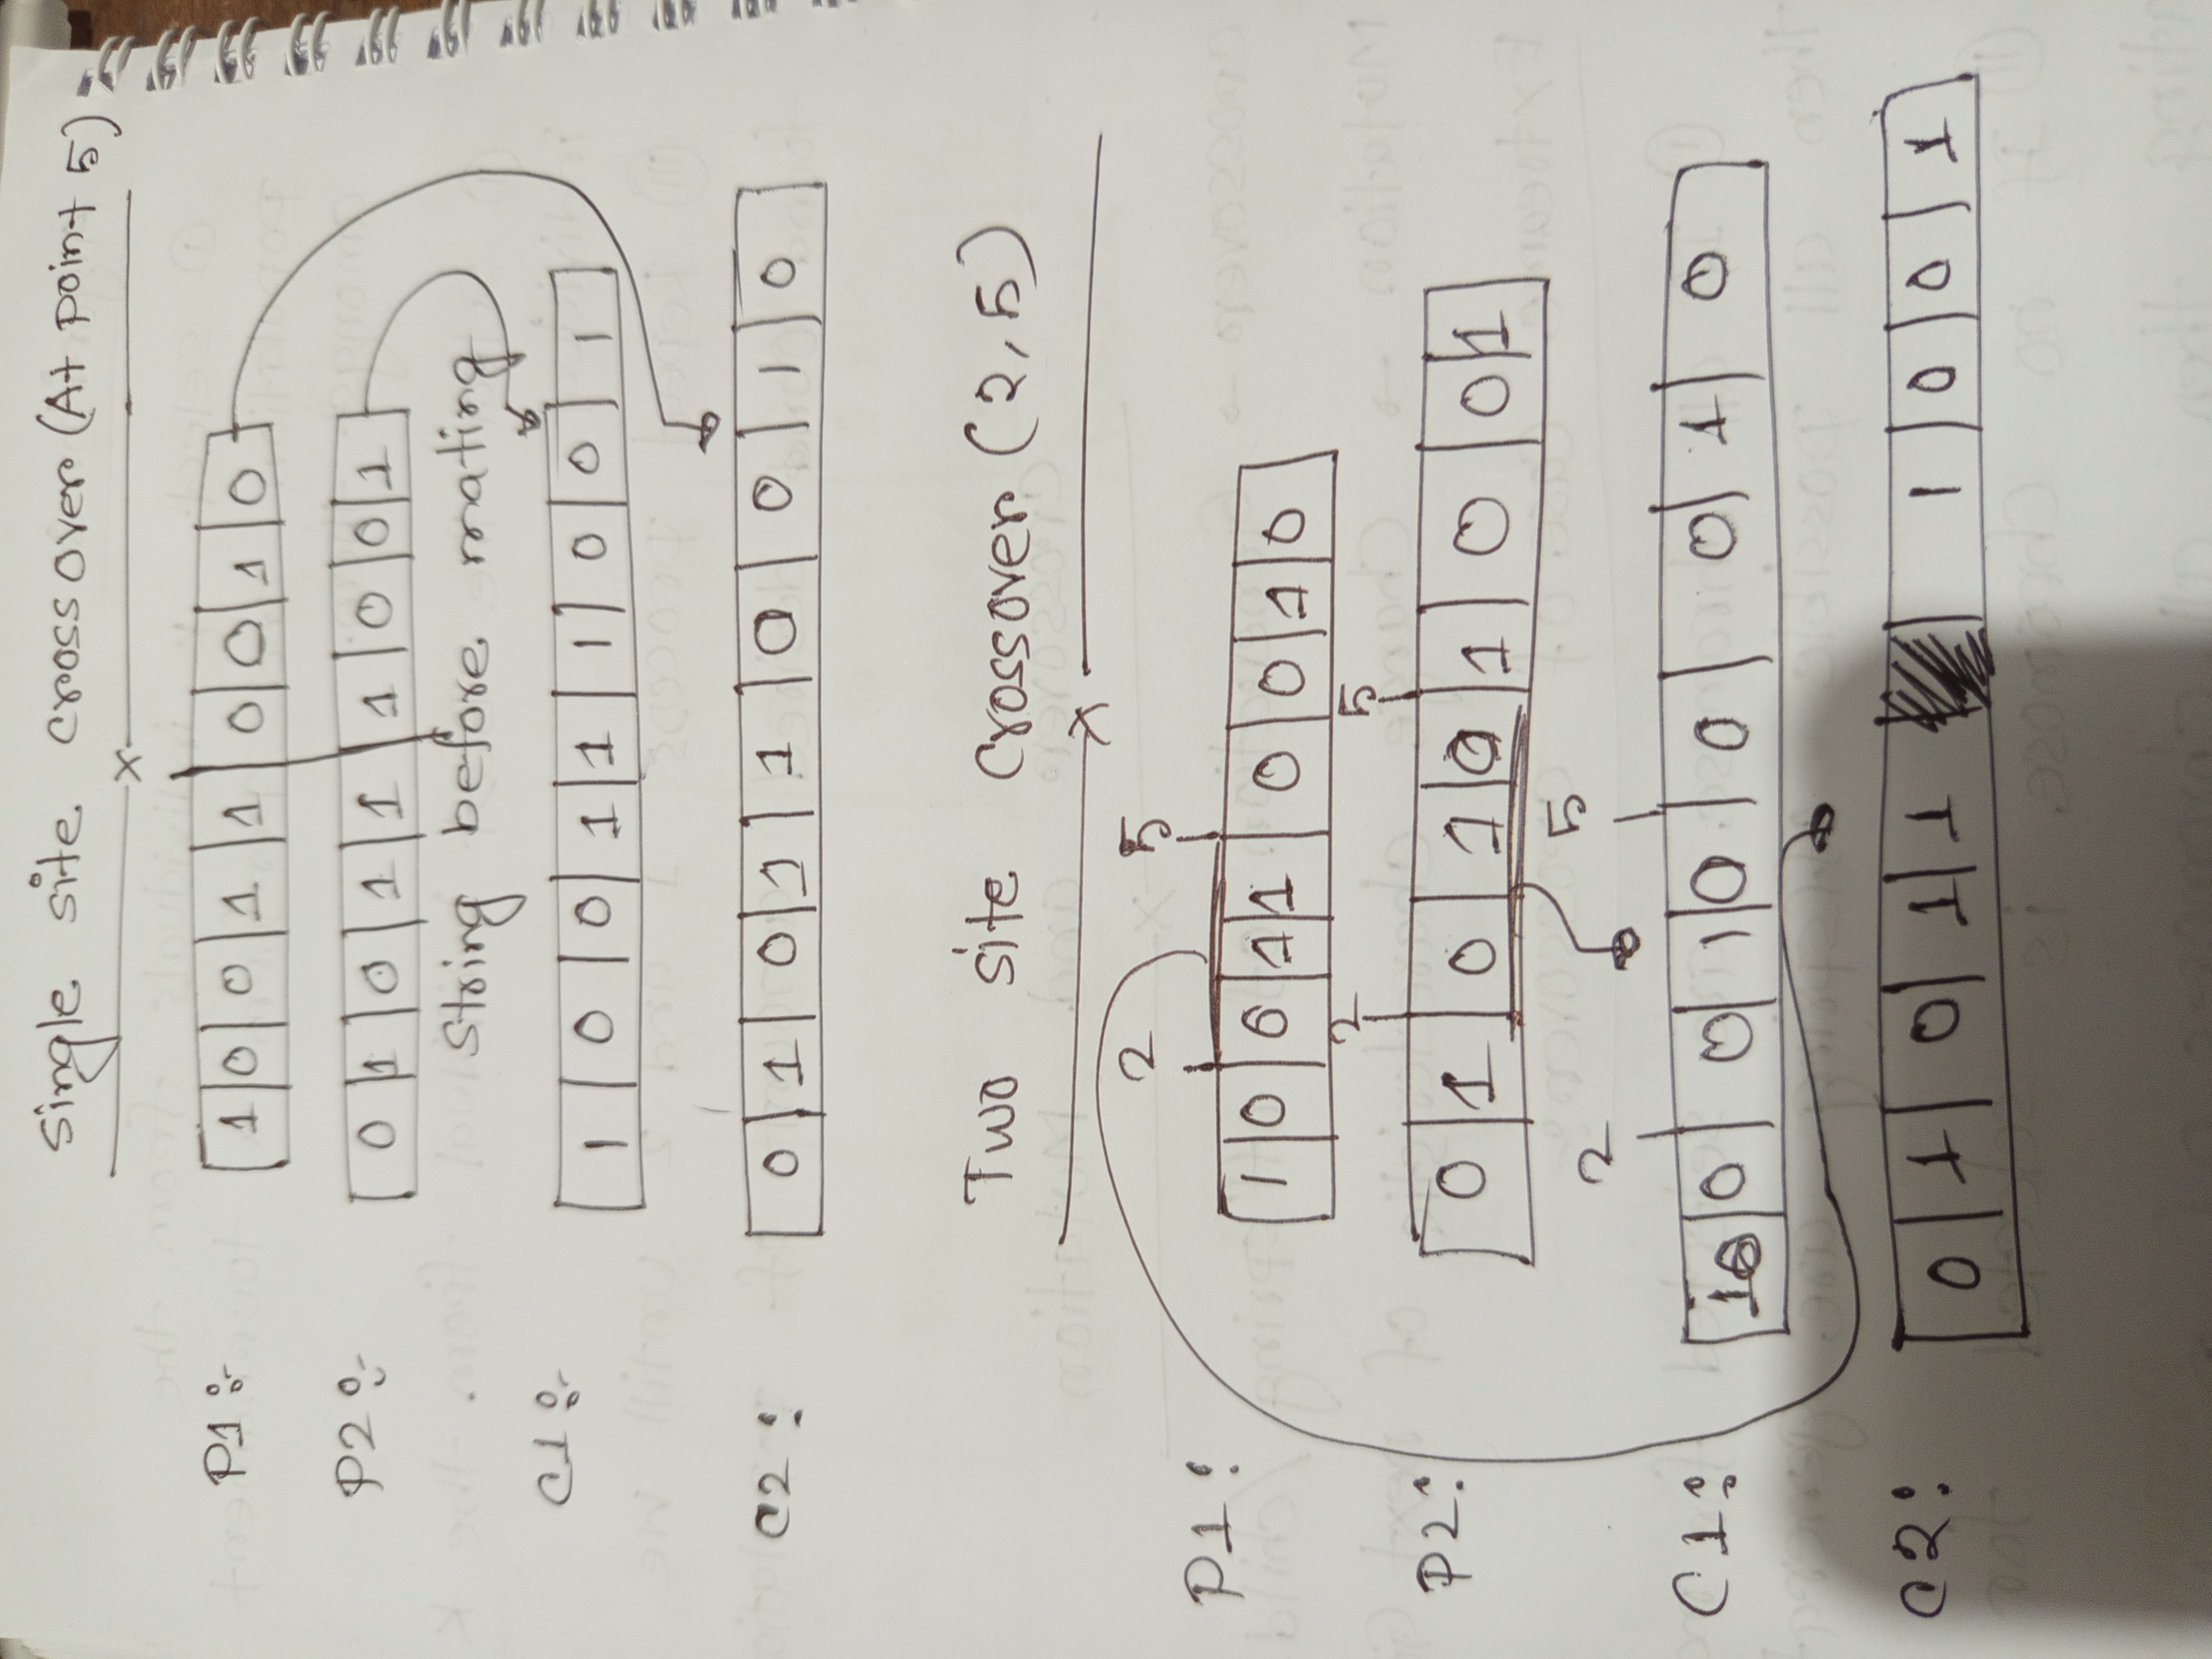 Single site crossover (At point 5)
x
P1:- 1 0 0 1 1 0 0 1 0
P2:- 0 1 0 1 1 1 0 0 1
String before mating
C1:- 1 0 0 1 1 1 0 0 1
C2: 0 1 0 1 1 0 0 1 0
Two site crossover (2,5)
x
2 5
P1: 1 0 0 1 1 0 0 1 0
2 5
P2: 0 1 0 1 0 1 0 0 1
2 5
C1: 1 0 0 1 0 0 0 1 0
C2: 0 1 0 1 1 1 0 0 1